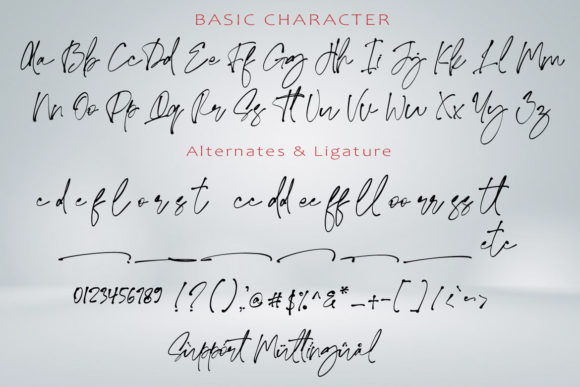 BASIC CHARACTER
Aa Bb Cc Dd Ee Ff Gg Hh Ii Jj Kk Ll Mm
Nn Oo Pp Qq Rr Ss Tt Uu Vv Ww Xx Yy Zz
Alternates & Ligature
c d e f l o r s t cc dd ee ff ll oo rr ss tt
etc
0123456789 ! ? ( ) , : ; @ # $ % ^ & * _ + - [ ] / { ` = ~ >
Süppört Mültiingüàl